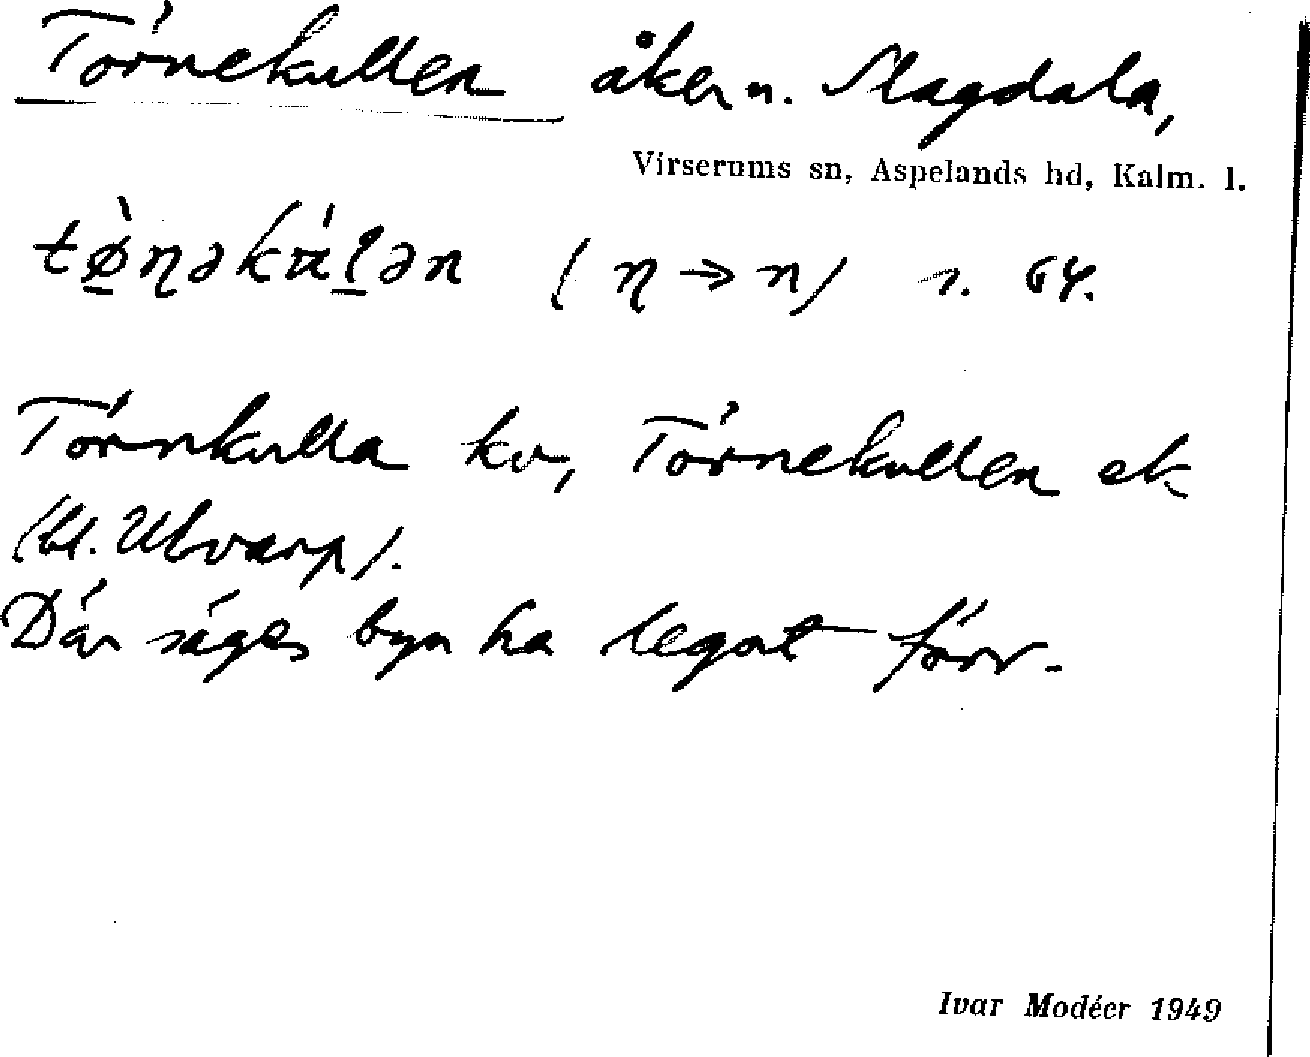 Törnekullen åkern. Magdala,
Virserums sn, Aspelands hd, Kalm. l.
(η → n) s. 64.
Törnkulla kv, Törnekullen ek
(bl. Ulvarp).
Där säges byn ha legat förr.
Ivar Modéer 1949